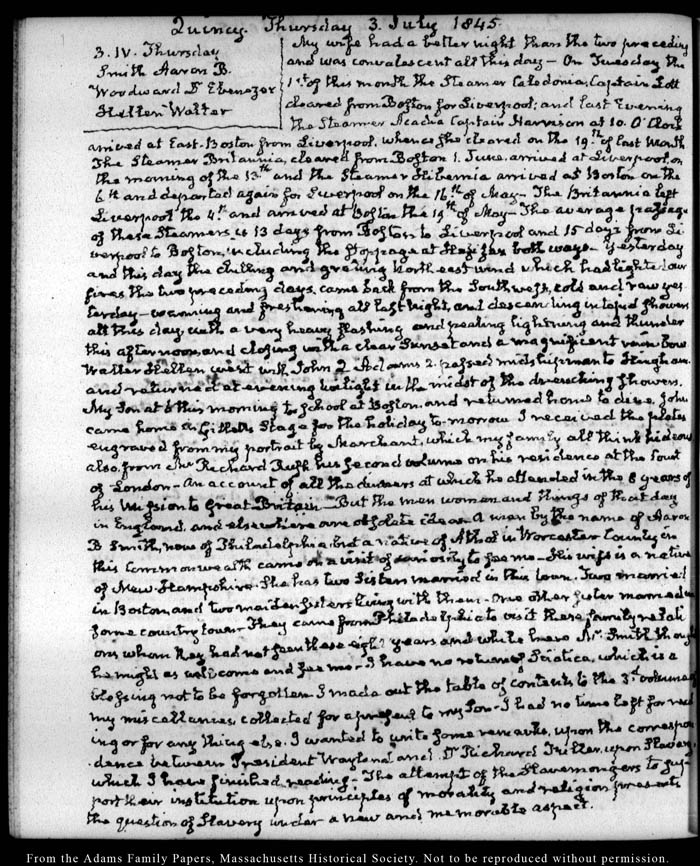 Quincy. Thursday 3. July 1845.
3. IV. Thursday
Smith Aaron B.
Woodward Dr Ebenezer
Hellen Walter
My wife had a better night than the two preceding
and was convalescent all this day— On Tuesday the
1st of this month the Steamer Caledonia, Captain Lott
cleared from Boston for Liverpool; and last Evening
the Steamer Acadia Captain Harrison at 10. O'Clock
arrived at East-Boston from Liverpool, whence she cleared on the 19th of last Month
The Steamer Britannia, cleared from Boston 1. June, arrived at Liverpool, on
the morning of the 13th and the Steamer Hibernia arrived at Boston on the
6th and departed again for Liverpool on the 16th of May— The Britannia left
Liverpool the 4th and arrived at Boston the 19th of May— The average passage
of these Steamers is 13 days from Boston to Liverpool and 15 days from Li-
verpool to Boston, including the stoppage at Halifax both ways— Yesterday
and this day the chilling and North east wind which had lighted our
fires the two preceding days, came back from the South west, cold and raw yes-
terday— warming and freshening all last night, and descending in showers
all this day, with a very heavy flashing and pealing lightning and thunder
this afternoon, and closing with a clear Sunset and a magnificent rain bow
Walter Hellen went with John Q. Adams 2. passed midshipman to Hingham
and returned at evening twilight in the midst of the drenching showers.
My Son at 8 this morning to school at Boston and returned home to dine. John
came home in Gillett's Stage for the holiday to-morrow. I received the plates
engraved from my portrait by Marchant, which my family all think hideous
also, from Mr Richard Rush his second volume on his residence at the Court
of London— An account of all the dinners at which he attended in the 8 years of
his Mission to Great Britain— But the men women and things of that day
in England, and elsewhere are obsolete ideas. A man by the name of Aaron
B. Smith, now of Philadelphia but a native of Athol in Worcester County in
this Commonwealth came on a visit of curiosity to see me— His wife is a native
of New Hampshire. She has two Sisters married in this town. Two married
in Boston, and two maiden sisters living with them. One other sister married in
some country town. They came from Philadelphia to visit these family relati-
ons whom they had not seen these eight years and while here Mr Smith thought
he might as well come and see me— I have no return of Sciatica, which is a
blessing not to be forgotten— I made out the table of contents to the 3d volume of
my miscellanies, collected for a present to my Son— I had no time left for read-
ing or for any thing else. I wanted to write some remarks, upon the correspon-
dence between President Wayland and Dr Richard Fuller, upon Slavery,
which I have finished reading— The attempt of the Slavemongers to sup-
port their institution upon principles of morality and religion presents
the question of Slavery under a new and memorable aspect.
From the Adams Family Papers, Massachusetts Historical Society. Not to be reproduced without permission.